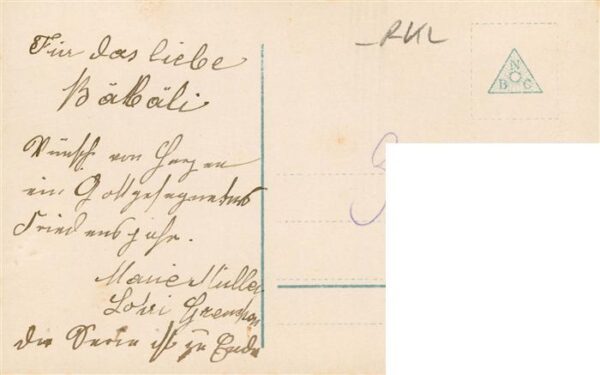 Für das liebe
Bäbäli
Wünsch von Herzen
ein Gottgesegnetes
Friedensjahr.
Marie Müller
die Serie ist zu Ende
RKL
N
B C